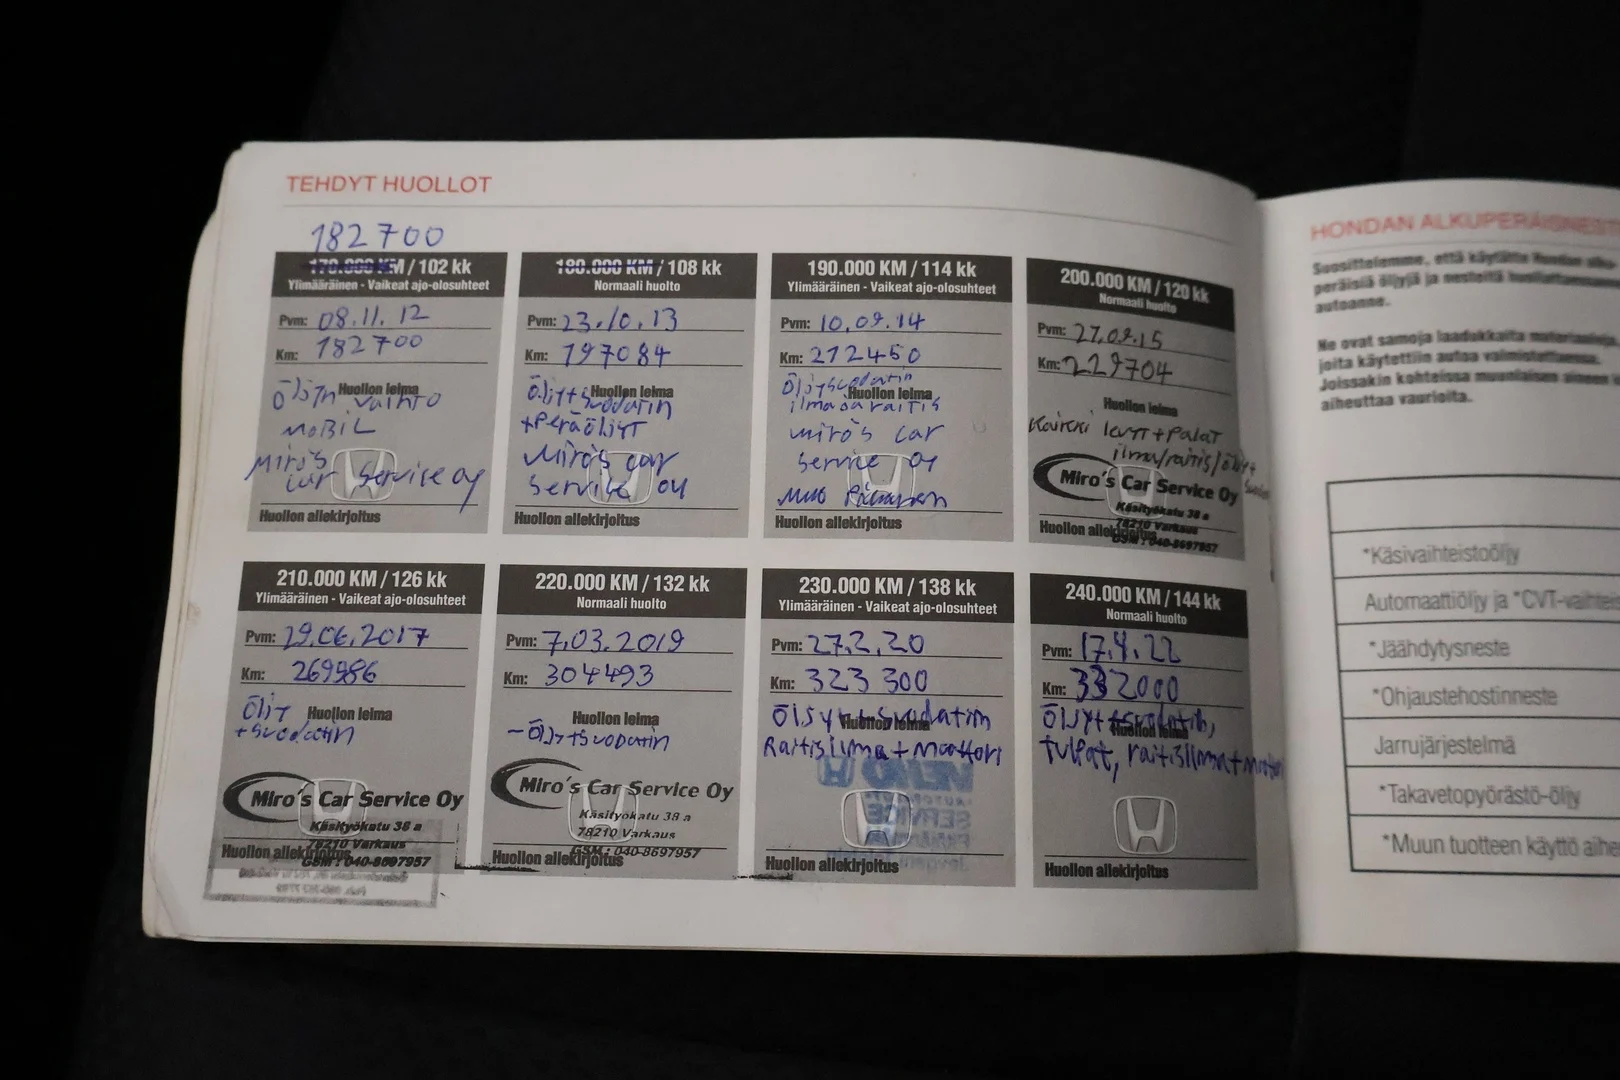 TEHDYT HUOLLOT
182700
170.000 KM / 102 kk
Ylimääräinen - Vaikeat ajo-olosuhteet
Pvm: 08.11.12
Km: 182700
Huollon leima
Öljyn vaihto
MOBIL
Miro's
Car Service Oy
Huollon allekirjoitus
180.000 KM / 108 kk
Normaali huolto
Pvm: 23.10.13
Km: 197084
Huollon leima
Öljyt+suodatin
+Peräöljyt
Miro's car
Service Oy
Huollon allekirjoitus
190.000 KM / 114 kk
Ylimääräinen - Vaikeat ajo-olosuhteet
Pvm: 10.09.14
Km: 212450
Öljysuodatin
Huollon leima
ilma ja raitis
miro's car
service oy
Huollon allekirjoitus
200.000 KM / 120 kk
Normaali huolto
Pvm: 27.08.15
Km: 229704
Huollon leima
Kaikki levyt+palat
ilma/raitis/öljyt
Miro's Car Service Oy
Käsityökatu 38 a
78210 Varkaus
GSM: 040-8697957
Huollon allekirjoitus
210.000 KM / 126 kk
Ylimääräinen - Vaikeat ajo-olosuhteet
Pvm: 29.06.2017
Km: 269986
Huollon leima
Öljyt
+suodatin
Miro's Car Service Oy
Käsityökatu 38 a
78210 Varkaus
GSM: 040-8697957
Huollon allekirjoitus
220.000 KM / 132 kk
Normaali huolto
Pvm: 7.03.2019
Km: 304493
Huollon leima
-Öljy+suodatin
Miro's Car Service Oy
Käsityökatu 38 a
78210 Varkaus
GSM: 040-8697957
Huollon allekirjoitus
230.000 KM / 138 kk
Ylimääräinen - Vaikeat ajo-olosuhteet
Pvm: 27.2.20
Km: 323 300
Huollon leima
Öljyt+suodatin
Raitisilma+moottori
Huollon allekirjoitus
240.000 KM / 144 kk
Normaali huolto
Pvm: 17.4.22
Km: 332000
Huollon leima
Öljyt+suodatin,
tulpat, raitisilma+moottori
Huollon allekirjoitus
HONDAN ALKUPERÄISNESTE
Suosittelemme, että käytätte Hondan alku-
peräisiä öljyjä ja nesteitä huollattaessanne
autoanne.
Ne ovat samoja laadukkaita materiaaleja,
joita käytettiin autoa valmistettaessa.
Joissakin kohteissa muunlaisen aineen
aiheuttaa vaurioita.
*Käsivaihteistoöljy
Automaattiöljy ja *CVT-vaihteis
*Jäähdytysneste
*Ohjaustehostinneste
Jarrujärjestelmä
*Takavetopyörästö-öljy
*Muun tuotteen käyttö aihe